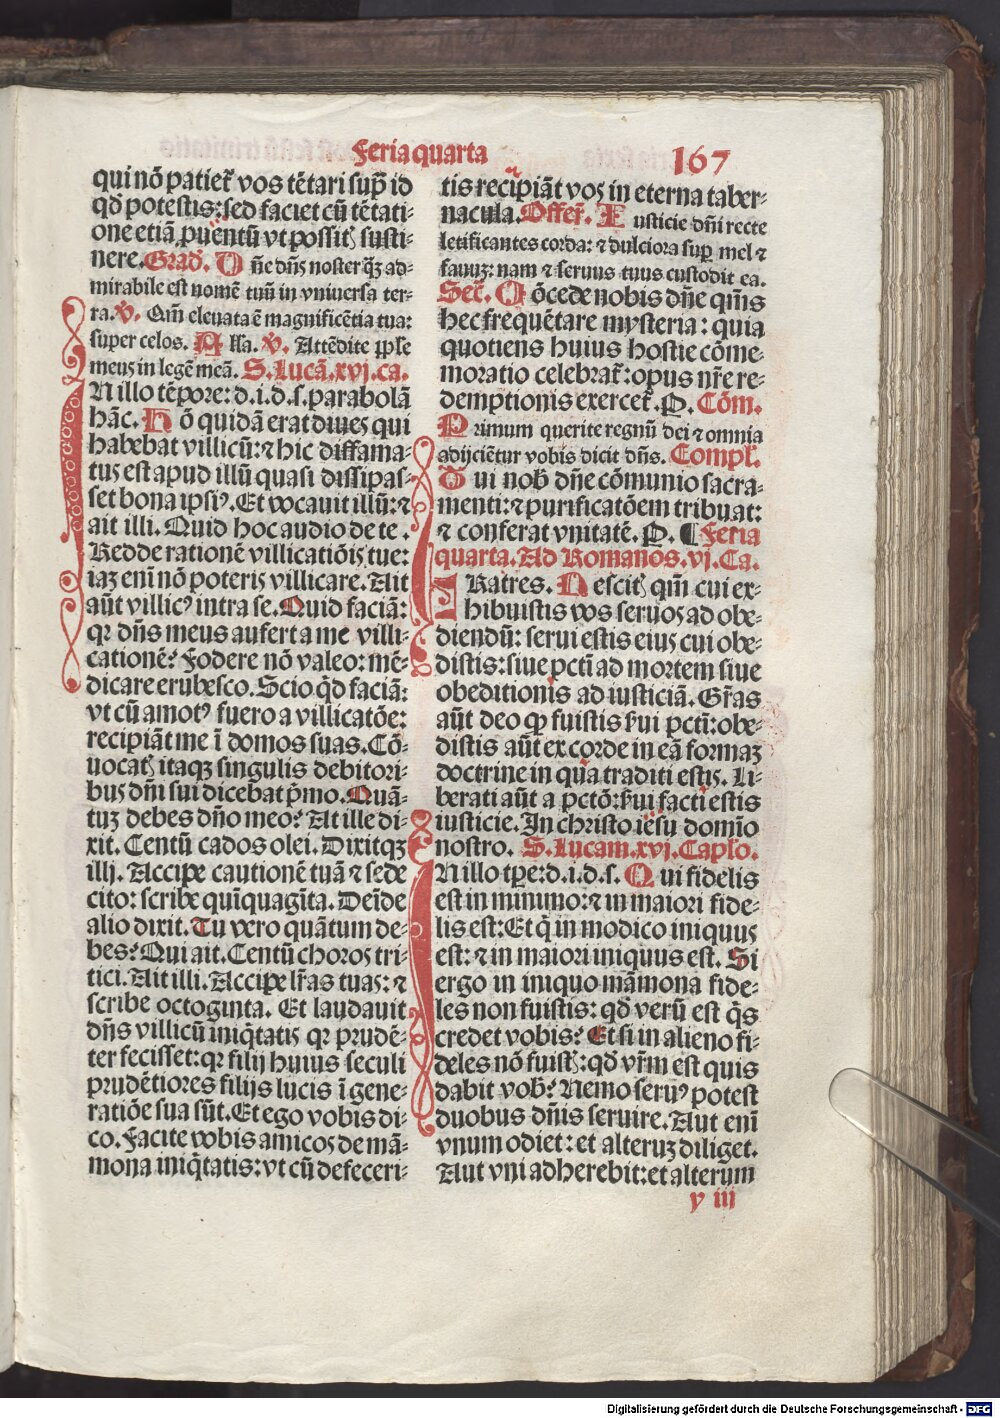 Feria quarta
167
qui nō patiet᷑ vos tētari sup̄ id
qd̄ potestis: sed faciet cū tētati-
one etiā ꝓuentū vt possitꝭ susti-
nere. Grad̄. D n̄e dn̄s noster q̄ꝫ ad-
mirabile est nomē tuū in vniuersa ter-
ra. V̇. Qm̄ eleuata ē magnificētia tua:
super celos. A lla. V̇. Attēdite ppl̄e
meus in legē meā. S. Lucā. xvj. ca.
I N illo tēpore: d. i. d. s. parabolā
hāc. H ō quidā erat diues qui
habebat villicū: ⁊ hic diffama-
tus est apud illū quasi dissipas-
set bona ipsiꝰ. Et vocauit illū: ⁊
ait illi. Quid hoc audio de te.
Redde rationē villicatiōis tue:
iaꝫ enī nō poteris villicare. Ait
aūt villicꝰ intra se. Quid faciā:
qꝛ dn̄s meus aufert a me villi-
cationē? Fodere nō valeo: mē-
dicare erubesco. Scio qd̄ faciā:
vt cū amotꝰ fuero a villicatōe:
recipiāt me ī domos suas. Cō-
uocatꝭ itaqꝫ singulis debitori-
bus dn̄i sui dicebat p̄mo. Quā-
tuꝫ debes dn̄o meo? At ille di-
xit. Centū cados olei. Dixitqꝫ
illi. Accipe cautionē tuā ⁊ sede
cito: scribe quīquagīta. Deīde
alio dixit. Tu vero quātum de-
bes? Qui ait. Centū choros tri-
tici. Ait illi. Accipe lr̄as tuas: ⁊
scribe octoginta. Et laudauit
dn̄s villicū iniq̄tatis qꝛ prudē-
ter fecisset: qꝛ filij huius seculi
prudētiores filijs lucis ī gene-
ratiōe sua sūt. Et ego vobis di-
co. Facite vobis amicos de mā-
mona iniq̄tatis: vt cū defeceri-
tis recipiāt vos in eterna taber-
nacula. Offer̄. I usticie dn̄i recte
letificantes corda: ⁊ dulciora sup̄ mel ⁊
fauuꝫ: nam ⁊ seruus tuus custodit ea.
Secr̄. C ōcede nobis dn̄e qm̄s
hec frequētare mysteria: quia
quotiens huius hostie cōme-
moratio celebrat᷑: opus nr̄e re-
demptionis exercet᷑. P. Cōm.
P rimum querite regnū dei ⁊ omnia
adijciētur vobis dicit dn̄s. Compl̄.
T ui nob̄ dn̄e cōmunio sacra-
menti: ⁊ purificatōem tribuat:
⁊ conferat vnitatē. P. ¶ Feria
quarta. Ad Romanos. vj. Ca.
F Ratres. N escitꝭ qm̄ cui ex-
hibuistis vos seruos ad obe-
diendū: serui estis eius cui obe-
distis: siue pctī ad mortem siue
obeditionis ad iusticiā. Gr̄as
aūt deo ꝙ fuistis ſ̄ui pctī: obe-
distis aūt ex corde in eā formaꝫ
doctrine in qua traditi estis. Li-
berati aūt a pctō: ſ̄ui facti estis
iusticie. In christo iesu domīo
nostro. S. Lucam. xvj. Caplo.
I N illo tp̄e: d. i. d. s. Q ui fidelis
est in minimo: ⁊ in maiori fide-
lis est: Et q̄ in modico iniquus
est: ⁊ in maiori iniquus est. Si
ergo in iniquo māmona fide-
les non fuistis: qd̄ verū est q̄s
credet vobis? Et si in alieno fi-
deles nō fuistꝭ: qd̄ vr̄m est quis
dabit vob̄? Nemo seruꝰ potest
duobus dn̄is seruire. Aut enī
vnum odiet: et alteruꝫ diliget.
Aut vni adherebit: et alterum
y iii
Digitalisierung gefördert durch die Deutsche Forschungsgemeinschaft - DFG